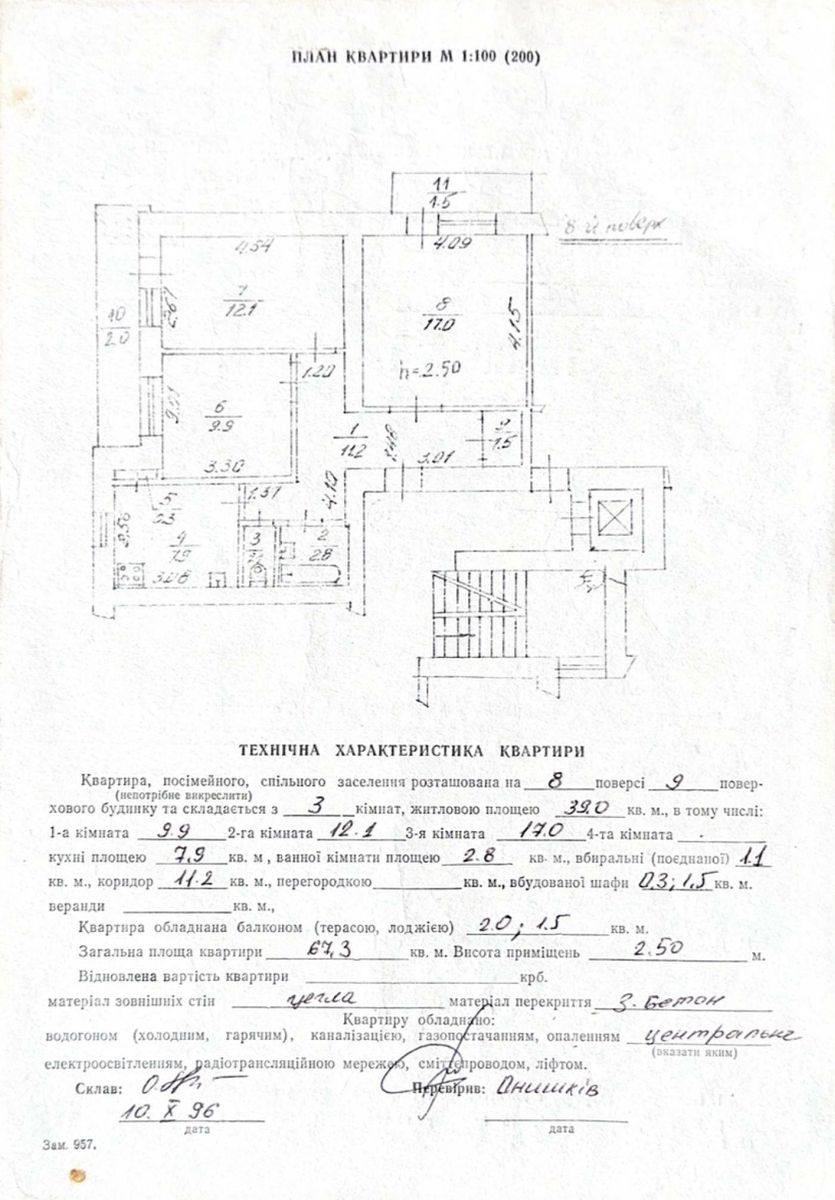 ПЛАН КВАРТИРИ М 1:100 (200)
11
1.5
8-й поверх
4.54
4.09
7
12.1
2.67
10
2.0
8
17.0
4.15
h=2.50
1.20
6
9.9
3.30
1
11.2
1.48
3.01
9
1.5
1.37
4.10
5
0.3
2.56
4
7.9
3.08
3
2
2.8
ТЕХНІЧНА ХАРАКТЕРИСТИКА КВАРТИРИ
Квартира, посімейного, спільного заселення розташована на 8 поверсі 9 повер-
(непотрібне викреслити)
хового будинку та складається з 3 кімнат, житловою площею 39.0 кв. м., в тому числі:
1-а кімната 9.9 2-га кімната 12.1 3-я кімната 17.0 4-та кімната
кухні площею 7,9 кв. м , ванної кімнати площею 2.8 кв. м., вбиральні (поєднаної) 1.1
кв. м., коридор 11.2 кв. м., перегородкою кв. м., вбудованої шафи 0,3; 1,5 кв. м.
веранди кв. м.,
Квартира обладнана балконом (терасою, лоджією) 2.0; 1.5 кв. м.
Загальна площа квартири 67,3 кв. м. Висота приміщень 2.50 м.
Відновлена вартість квартири крб.
матеріал зовнішніх стін цегла матеріал перекриття З. Бетон
Квартиру обладнано:
водогоном (холодним, гарячим), каналізацією, газопостачанням, опаленням центральне
(вказати яким)
електроосвітленням, радіотрансляційною мережею, сміттєпроводом, ліфтом.
Склав: Перевірив: Онишків
10. X 96
дата дата
Зам. 957.